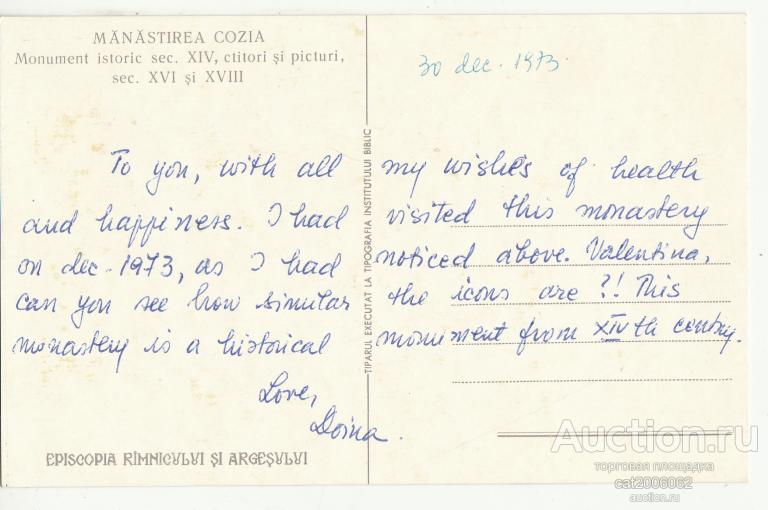 MĂNĂSTIREA COZIA
Monument istoric sec. XIV, ctitori și picturi,
sec. XVI și XVIII
30 dec. 1973.
To you, with all my wishes of health
and happiness. I had visited this monastery
on dec. 1973, as I had noticed above. Valentina,
can you see how similar the icons are ?! This
monastery is a historical monument from XIVth centry.
Love,
Doina.
EPISCOPIA RÎMNICULUI ȘI ARGEȘULUI
TIPARUL EXECUTAT LA TIPOGRAFIA INSTITUTULUI BIBLIC
Auction.ru
торговая площадка
cat2006062
auction.ru